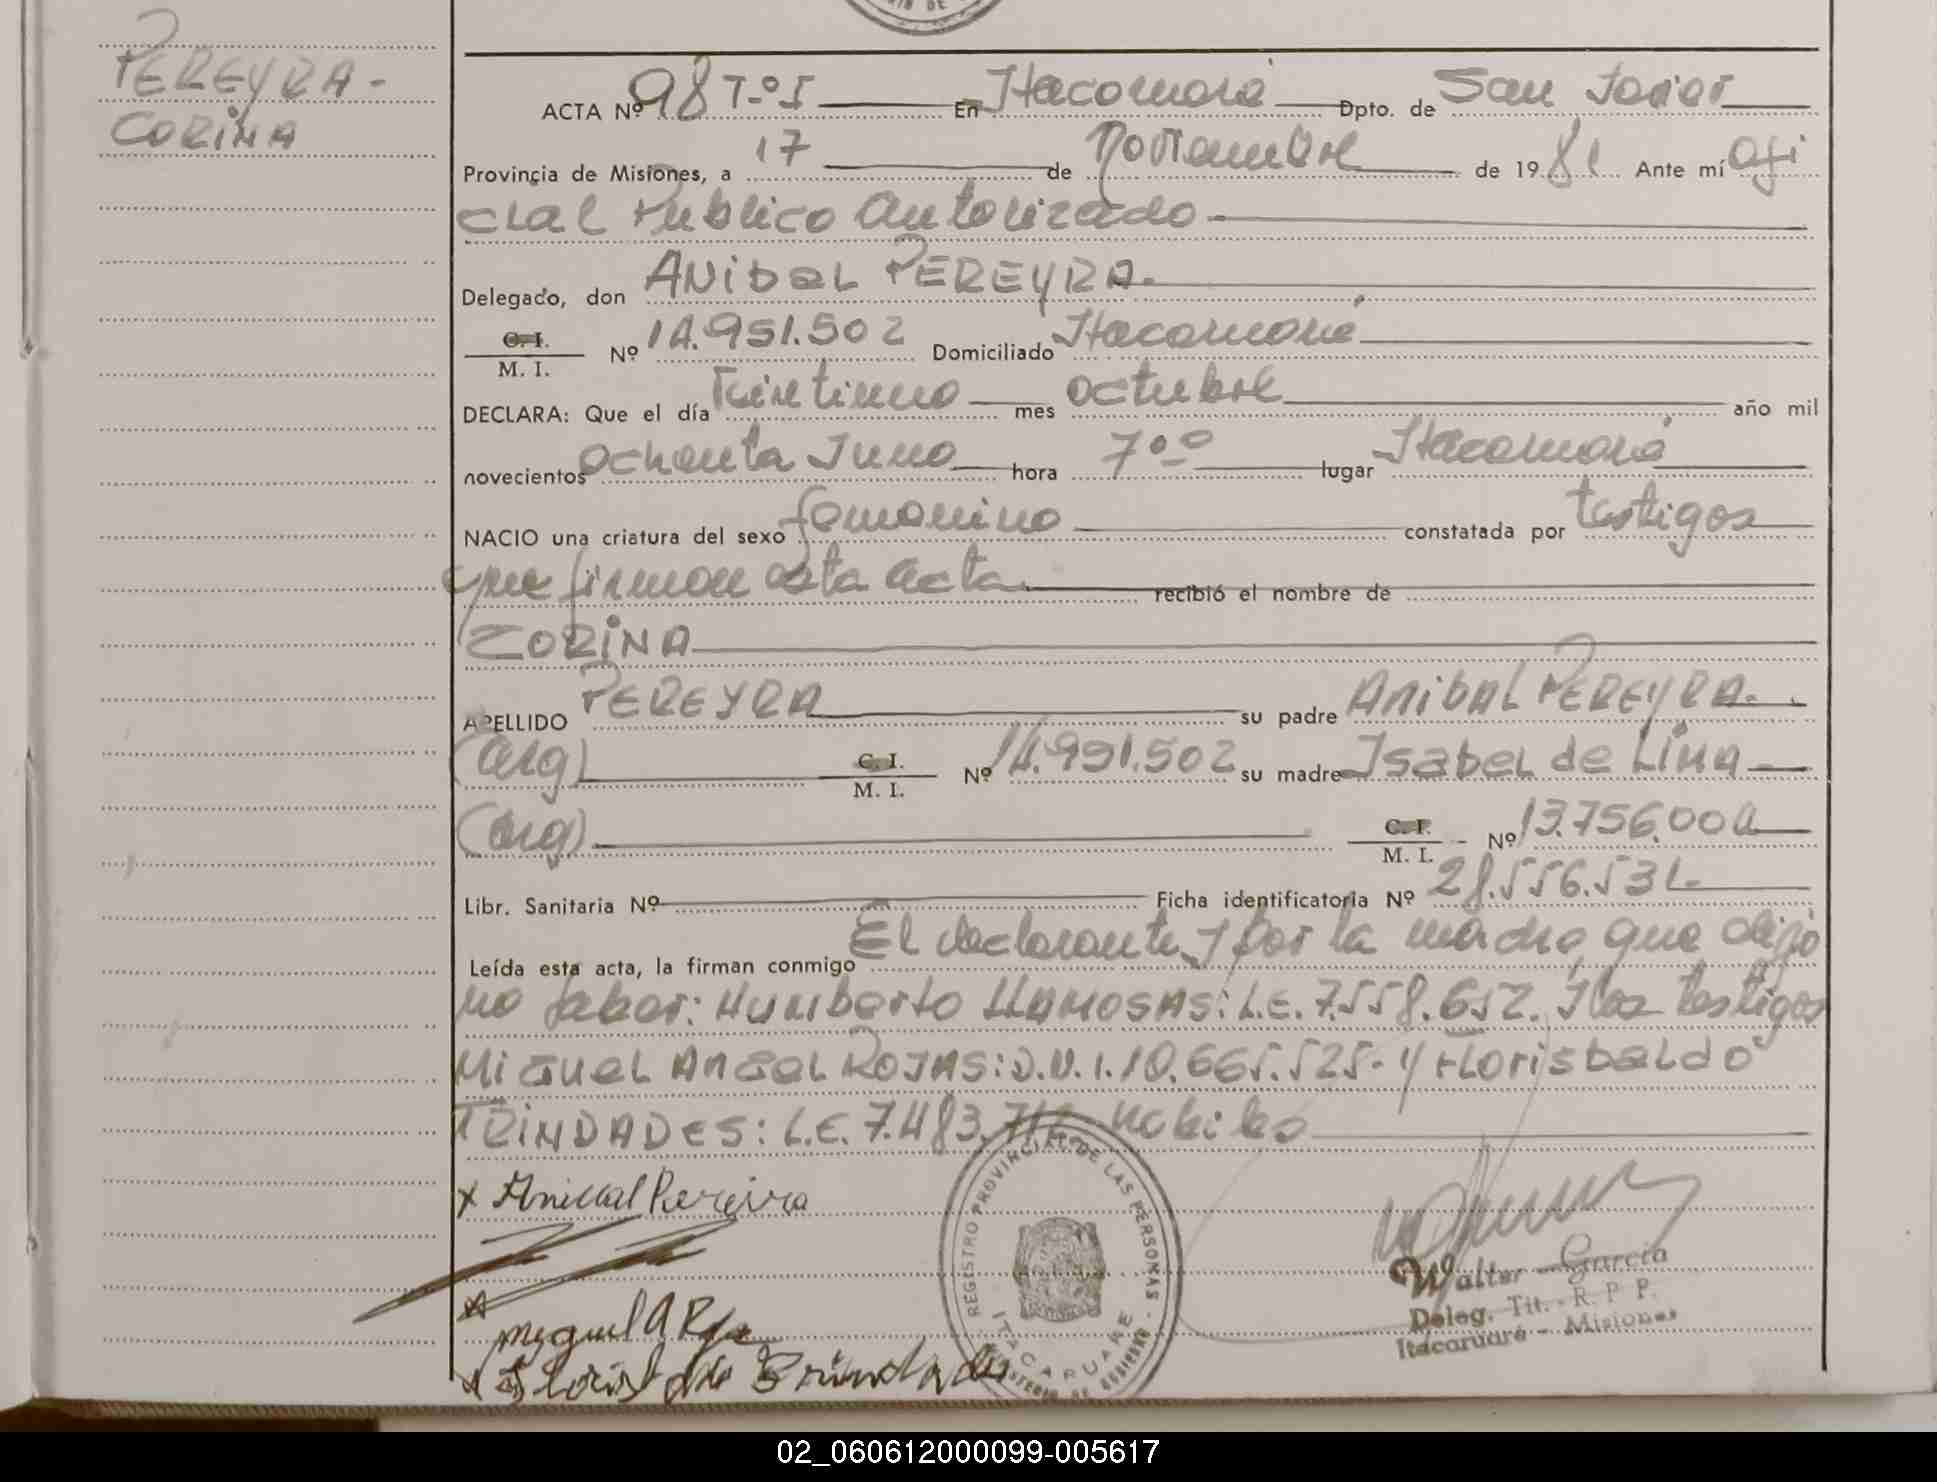 PEREYRA-
CORINA
ACTA Nº 98 T-º I En Itacaruaré Dpto. de San Javier
Provincia de Misiones, a 17 de Noviembre de 1981 Ante mí Ofi
cial Publico Autorizado
Delegado, don ANIBAL PEREYRA.
C. I.
M. I. Nº 14.951.502 Domiciliado Itacaruaré
DECLARA: Que el día Veintiuno mes octubre año mil
novecientos ochenta y uno hora 7ºº lugar Itacaruaré
NACIO una criatura del sexo femenino constatada por testigos
que firman esta acta recibió el nombre de
CORINA
APELLIDO PEREYRA su padre ANIBAL PEREYRA.
(arg) C. I.
M. I. Nº 14.951.502 su madre Isabel de Lima
(arg) C. I.
M. I. Nº 13.756.00
Libr. Sanitaria Nº Ficha identificatoria Nº 28.556.531.
Leída esta acta, la firman conmigo El declarante, y por la madre que dijo
no saber: Humberto LLAMOSAS: L.E. 7.558.652. y los testigos
Miguel Angel ROJAS: D.N.I. 10.665.525- y Florisbaldo
TRINDADES: L.E. 7.483.71 habiles
x Anibal Pereira
REGISTRO PROVINCIAL DE LAS PERSONAS
ITACARUARE
MINISTERIO DE GOBIERNO
Walter García
Deleg. Tit. - R. P. P.
Itacaruaré - Misiones
Miguel A
Trindade
02_060612000099-005617